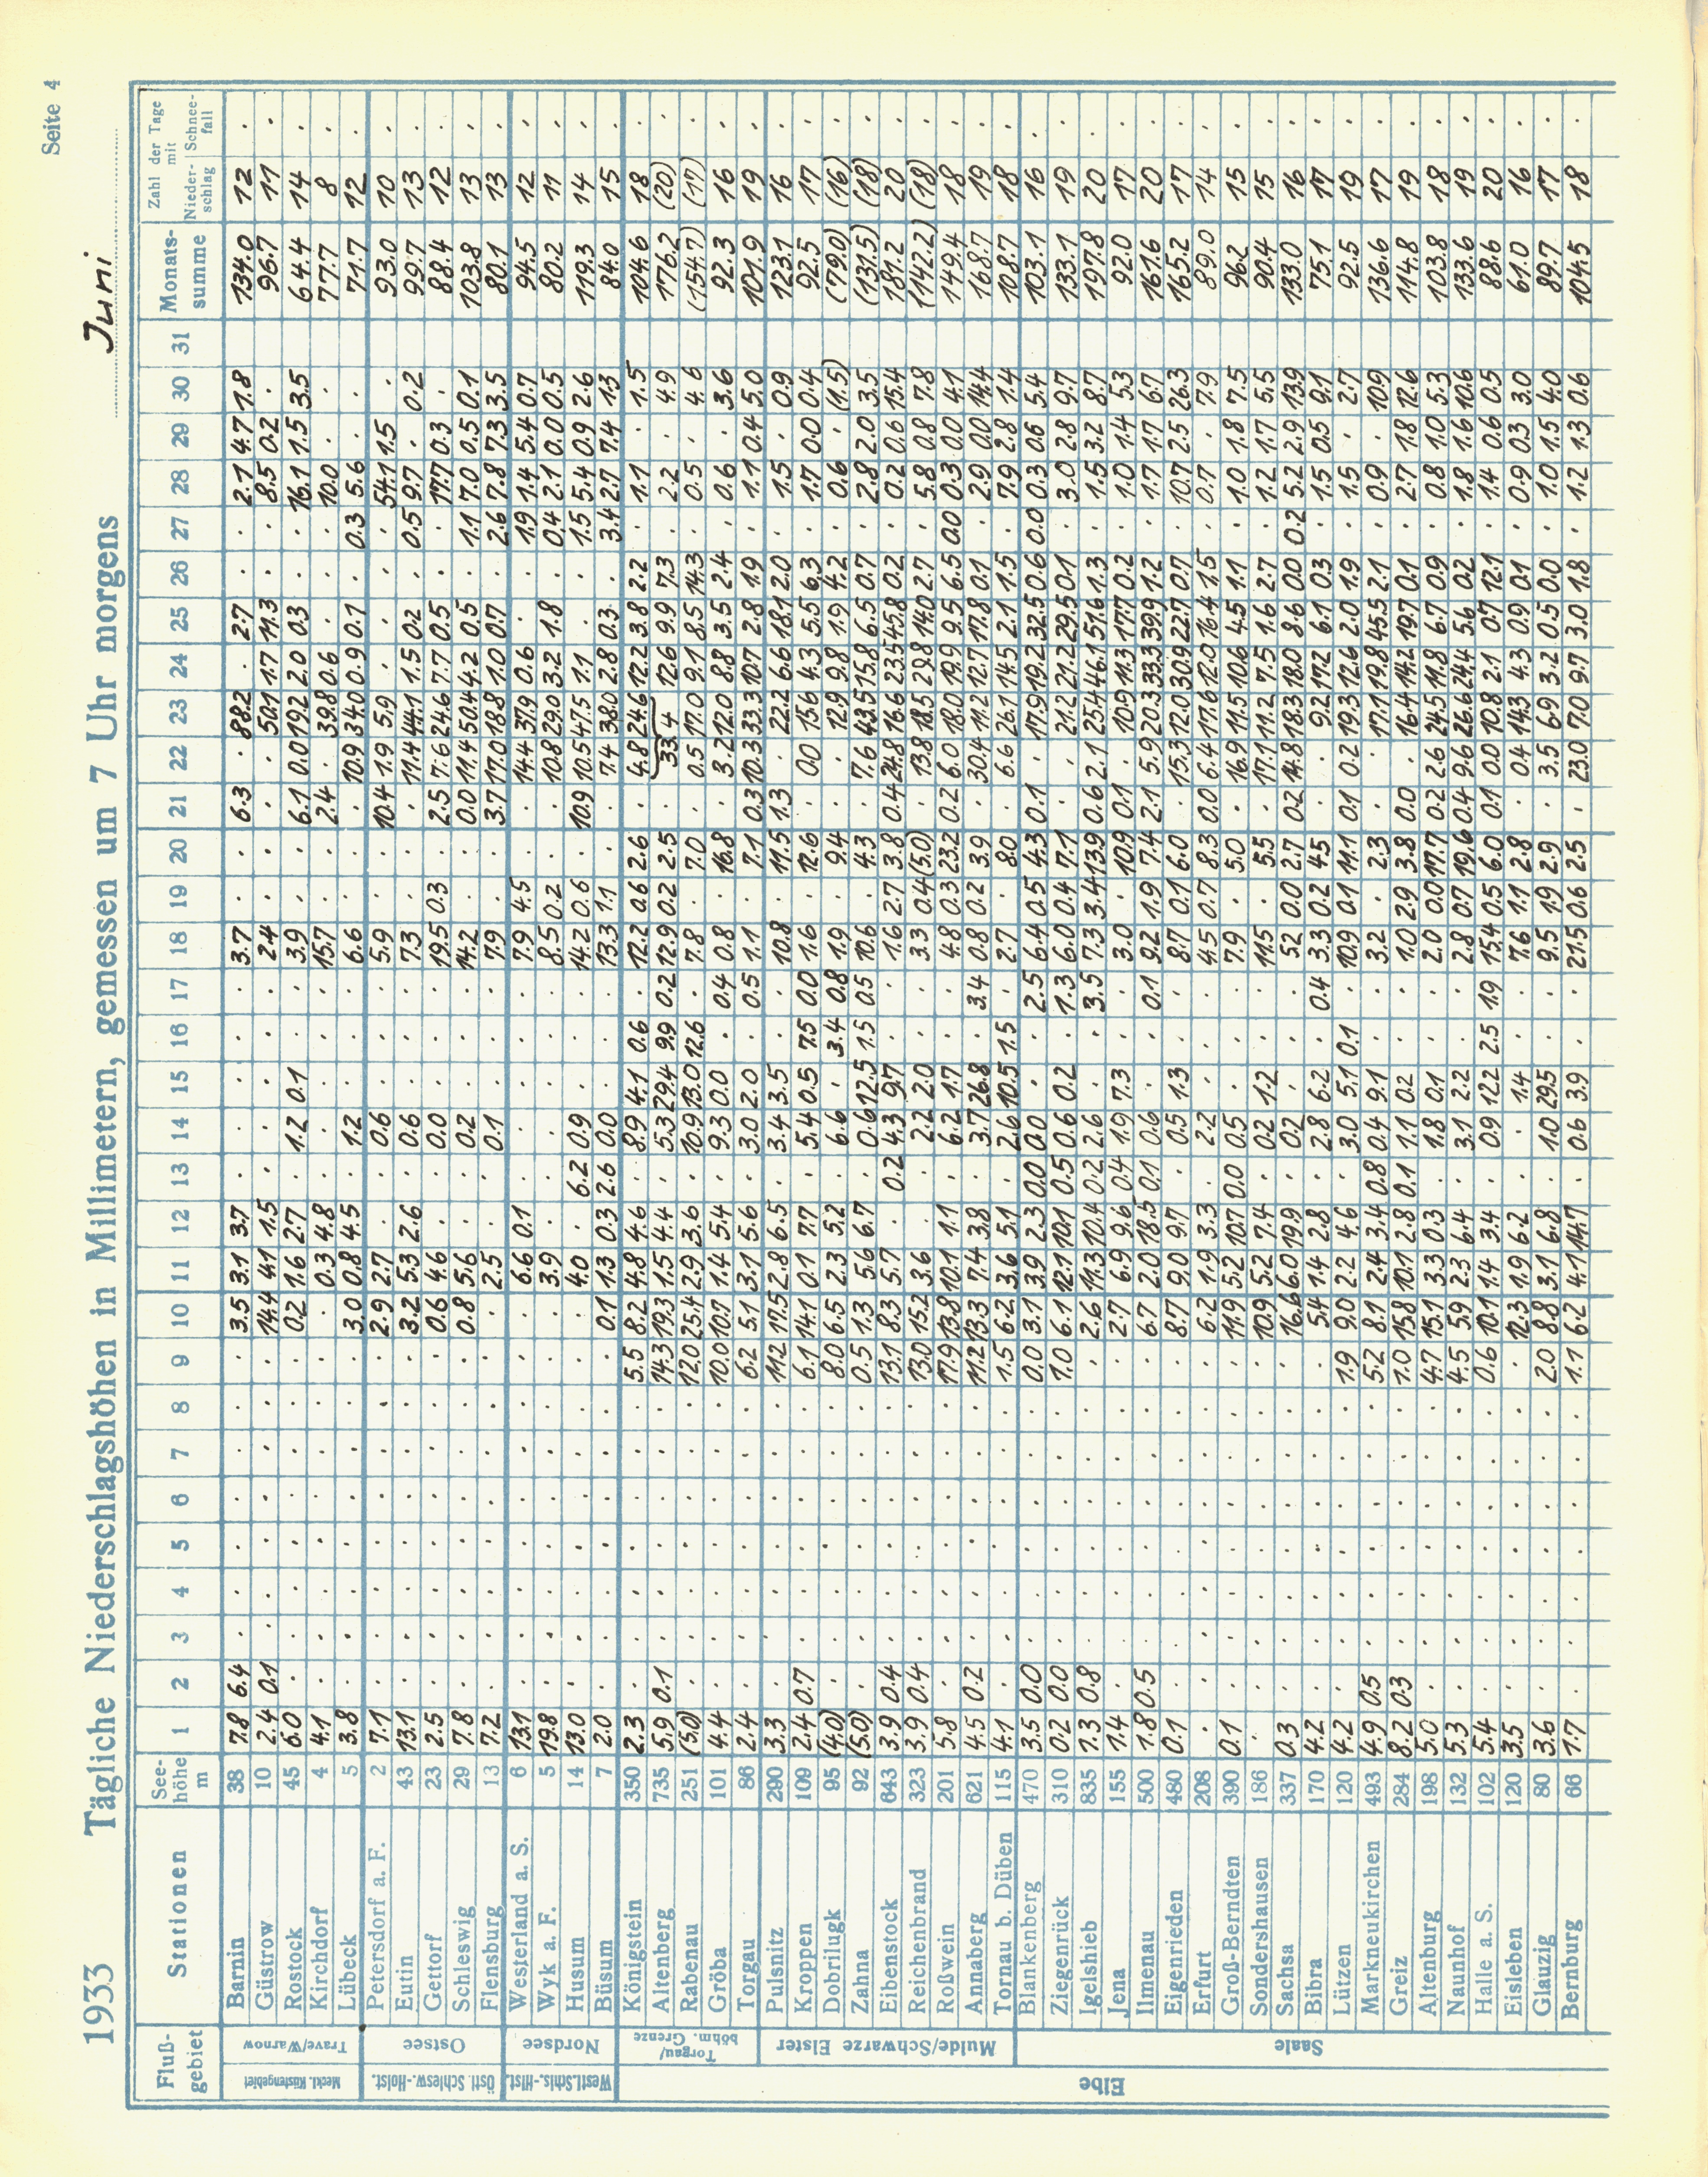 Seite 4
1933 Tägliche Niederschlagshöhen in Millimetern, gemessen um 7 Uhr morgens Juni
Fluß-gebiet Stationen See-höhe m 1 2 3 4 5 6 7 8 9 10 11 12 13 14 15 16 17 18 19 20 21 22 23 24 25 26 27 28 29 30 31 Monats-summe Zahl der Tage mit Nieder-schlag Schnee-fall
Meckl. Küstengebiet
Trave/Warnow
Barnin 38 7.8 6.4 . . . . . . . 3.5 3.1 3.7 . . . . . 3.7 . . 6.3 . 88.2 . 2.7 . . 2.1 4.7 1.8 134.0 12 .
Güstrow 10 2.4 0.1 . . . . . . . 14.4 4.1 1.5 . . . . . 2.4 . . . . 50.1 1.7 11.3 . . 8.5 0.2 . 96.7 11 .
Rostock 45 6.0 . . . . . . . . 0.2 1.6 2.7 . 1.2 0.1 . . 3.9 . . 6.1 0.0 19.2 2.0 0.3 . . 16.1 1.5 3.5 64.4 14 .
Kirchdorf 4 4.1 . . . . . . . . . 0.3 4.8 . . . . . 15.7 . . 2.4 . 39.8 0.6 . . . 10.0 . . 77.7 8 .
Lübeck 5 3.8 . . . . . . . . 3.0 0.8 4.5 . 1.2 . . . 6.6 . . . 10.9 34.0 0.9 0.1 . 0.3 5.6 . . 71.7 12 .
Östl. Schlesw.-Holst.
Ostsee
Petersdorf a. F. 2 7.1 . . . . . . . . 2.9 2.7 . . 0.6 . . . 5.9 . . 10.4 1.9 5.9 . . . . 54.1 1.5 . 93.0 10 .
Eutin 43 13.1 . . . . . . . . 3.2 5.3 2.6 . 0.6 . . . 7.3 . . . 11.4 44.1 1.5 0.2 . 0.5 9.7 . 0.2 99.7 13 .
Gettorf 23 2.5 . . . . . . . . 0.6 4.6 . . 0.0 . . . 19.5 0.3 . 2.5 7.6 24.6 7.7 0.5 . . 17.7 0.3 . 88.4 12 .
Schleswig 29 7.8 . . . . . . . . 0.8 5.6 . . 0.2 . . . 14.2 . . 0.0 11.4 50.4 4.2 0.5 . 1.1 7.0 0.5 0.1 103.8 13 .
Flensburg 13 7.2 . . . . . . . . . 2.5 . . 0.1 . . . 7.9 . . 3.7 17.0 18.8 1.0 0.7 . 2.6 7.8 7.3 3.5 80.1 13 .
Westl. Schls.-Hlst.
Nordsee
Westerland a. S. 6 13.1 . . . . . . . . . 6.6 0.1 . . . . . 7.9 4.5 . . 14.4 37.9 0.6 . . 1.9 1.4 5.4 0.7 94.5 12 .
Wyk a. F. 5 19.8 . . . . . . . . . 3.9 . . . . . . 8.5 0.2 . . 10.8 29.0 3.2 1.8 . 0.4 2.1 0.0 0.5 80.2 11 .
Husum 14 13.0 . . . . . . . . . 4.0 . 6.2 0.9 . . . 14.2 0.6 . 10.9 10.5 47.5 1.1 . . 1.5 5.4 0.9 2.6 119.3 14 .
Büsum 7 2.0 . . . . . . . . 0.1 1.3 0.3 2.6 0.0 . . . 13.3 1.1 . . 7.4 38.0 2.8 0.3 . 3.4 2.7 7.4 1.3 84.0 15 .
Elbe
Torgau/böhm. Grenze
Königstein 350 2.3 . . . . . . . 5.5 8.2 4.8 4.6 . 8.9 4.1 0.6 . 12.2 0.6 2.6 . 4.8 24.6 12.2 3.8 2.2 . 1.1 . 1.5 104.6 18 .
Altenberg 735 5.9 0.1 . . . . . . 14.3 19.3 1.5 4.4 . 5.3 29.4 9.9 0.2 12.9 0.2 2.5 . 33.4 12.6 9.9 7.3 . 2.2 . 4.9 176.2 (20) .
Rabenau 251 (5.0) . . . . . . . 12.0 25.4 2.9 3.6 . 10.9 13.0 12.6 . 7.8 . 7.0 . 0.5 17.0 9.1 8.5 14.3 . 0.5 . 4.6 (154.7) (17) .
Gröba 101 4.4 . . . . . . . 10.0 10.7 1.4 5.4 . 9.3 0.0 . 0.4 0.8 . 16.8 . 3.2 12.0 8.8 3.5 2.4 . 0.6 . 3.6 92.3 16 .
Torgau 86 2.4 . . . . . . . 6.2 5.1 3.1 5.6 . 3.0 2.0 . 0.5 1.1 . 7.1 0.3 10.3 33.3 10.7 2.8 1.9 . 1.1 0.4 5.0 101.9 19 .
Mulde/Schwarze Elster
Pulsnitz 290 3.3 . . . . . . . 11.2 17.5 2.8 6.5 . 3.4 3.5 . . 10.8 . 11.5 1.3 . 22.2 6.6 18.1 2.0 . 1.5 . 0.9 123.1 16 .
Kroppen 109 2.4 0.7 . . . . . . 6.1 14.1 0.1 7.7 . 5.4 0.5 7.5 0.0 1.6 . 12.6 . 0.0 15.6 4.3 5.5 6.3 . 1.7 0.0 0.4 92.5 17 .
Dobrilugk 95 (4.0) . . . . . . . 8.0 6.5 2.3 5.2 . 6.6 . 3.4 0.8 1.9 . 9.4 . . 12.9 9.8 1.9 4.2 . 0.6 . (1.5) (79.0) (16) .
Zahna 92 (5.0) . . . . . . . 0.5 1.3 5.6 6.7 . 0.6 12.5 1.5 0.5 10.6 . 4.3 . 7.6 43.5 15.8 6.5 0.7 . 2.8 2.0 3.5 (131.5) (18) .
Eibenstock 643 3.9 0.4 . . . . . . 13.1 8.3 5.7 . 0.2 4.3 9.7 . . 1.6 2.7 3.8 0.4 24.8 16.6 23.5 45.8 0.2 . 0.2 0.6 15.4 181.2 20 .
Reichenbrand 323 3.9 0.4 . . . . . . 13.0 15.2 3.6 . . 2.2 2.0 . . 3.3 0.4 (5.0) . 13.8 18.5 29.8 14.0 2.7 . 5.8 0.8 7.8 (142.2) (18) .
Roßwein 201 5.8 . . . . . . . 17.9 13.8 10.1 1.1 . 6.2 1.7 . . 4.8 0.3 23.2 0.2 6.0 18.0 19.9 9.5 6.5 0.0 0.3 0.0 4.1 149.4 18 .
Annaberg 621 4.5 0.2 . . . . . . 11.2 13.3 7.4 3.8 . 3.7 26.8 . 3.4 0.8 0.2 3.9 . 30.4 11.2 12.7 17.8 0.1 . 2.9 0.0 14.4 168.7 19 .
Tornau b. Düben 115 4.1 . . . . . . . 1.5 6.2 3.6 5.1 . 2.6 10.5 1.5 . 2.7 . 8.0 . 6.6 26.1 14.5 2.1 1.5 . 7.9 2.8 1.4 108.7 18 .
Saale
Blankenberg 470 3.5 0.0 . . . . . . 0.0 3.1 3.9 2.3 0.0 0.0 . . 2.5 6.4 0.5 4.3 0.1 . 17.9 19.2 32.5 0.6 0.0 0.3 0.6 5.4 103.1 16 .
Ziegenrück 310 0.2 0.0 . . . . . . 1.0 6.1 12.1 10.1 0.5 0.6 0.2 . 1.3 6.0 0.4 7.1 . . 21.2 21.2 29.5 0.1 . 3.0 2.8 9.7 133.1 19 .
Igelshieb 835 7.3 0.8 . . . . . . . 2.6 11.3 10.4 0.2 2.6 . . 3.5 7.3 3.4 13.9 0.6 2.1 25.4 46.1 51.6 1.3 . 1.5 3.2 8.7 197.8 20 .
Jena 155 1.4 . . . . . . . . 2.7 6.9 9.6 0.4 1.9 7.3 . . 3.0 . 10.9 0.1 . 10.9 11.3 17.7 0.2 . 1.0 1.4 5.3 92.0 17 .
Ilmenau 500 1.8 0.5 . . . . . . . 6.7 2.0 18.5 0.1 0.6 . . 0.1 9.2 1.9 7.4 2.1 5.9 20.3 33.3 39.9 1.2 . 1.7 1.7 6.7 161.6 20 .
Eigenrieden 480 0.1 . . . . . . . . 8.7 9.0 9.7 . 0.5 1.3 . . 8.7 0.1 6.0 . 15.3 12.0 30.9 22.7 0.7 . 10.7 2.5 26.3 165.2 17 .
Erfurt 208 . . . . . . . . . 6.2 1.9 3.3 . 2.2 . . . 4.5 0.7 8.3 0.0 6.4 17.6 12.0 16.4 1.5 . 0.7 . 7.9 89.0 14 .
Groß-Berndten 390 0.1 . . . . . . . . 11.9 5.2 10.7 0.0 0.5 . . . 7.9 . 5.0 . 16.9 11.5 10.6 4.5 1.1 . 1.0 1.8 7.5 96.2 15 .
Sondershausen 186 . . . . . . . . . 10.9 5.2 7.4 . 0.2 1.2 . . 11.5 . 5.5 . 17.1 11.2 7.5 1.6 2.7 . 1.2 1.7 5.5 90.4 15 .
Sachsa 337 0.3 . . . . . . . . 16.6 6.0 19.9 . 0.2 . . . 5.2 0.0 2.7 0.2 14.8 18.3 18.0 8.6 0.0 0.2 5.2 2.9 13.9 133.0 16 .
Bibra 170 4.2 . . . . . . . . 5.4 1.4 2.8 . 2.8 6.2 . 0.4 3.3 0.2 4.5 . . 9.2 17.2 6.1 0.3 . 1.5 0.5 9.1 75.1 17 .
Lützen 120 4.2 . . . . . . . 1.9 9.0 2.2 4.6 . 3.0 5.1 0.1 . 10.9 0.1 11.1 0.1 0.2 19.3 12.6 2.0 1.9 . 1.5 . 2.7 92.5 19 .
Markneukirchen 493 4.9 0.5 . . . . . . 5.2 8.1 2.4 3.4 0.8 0.4 9.1 . . 3.2 . 2.3 . . 17.1 19.8 45.5 2.1 . 0.9 . 10.9 136.6 17 .
Greiz 284 8.2 0.3 . . . . . . 1.0 15.8 10.1 2.8 0.1 1.1 0.2 . . 1.0 2.9 3.8 0.0 . 16.4 14.2 19.7 0.1 . 2.7 1.8 12.6 114.8 19 .
Altenburg 198 5.0 . . . . . . . 4.7 15.1 3.3 0.3 . 1.8 0.1 . . 2.0 0.0 17.7 0.2 2.6 24.5 11.8 6.7 0.9 . 0.8 1.0 5.3 103.8 18 .
Naunhof 132 5.3 . . . . . . . 4.5 5.9 2.3 6.4 . 3.1 2.2 . . 2.8 0.7 19.6 0.4 9.6 26.6 24.4 5.6 0.2 . 1.8 1.6 10.6 133.6 19 .
Halle a. S. 102 5.4 . . . . . . . 0.6 10.1 1.4 3.4 . 0.9 12.2 2.5 1.9 15.4 0.5 6.0 0.1 0.0 10.8 2.1 0.7 12.1 . 1.4 0.6 0.5 88.6 20 .
Eisleben 120 3.5 . . . . . . . . 12.3 1.9 6.2 . . 1.4 . . 7.6 1.1 2.8 . 0.4 14.3 4.3 0.9 0.1 . 0.9 0.3 3.0 61.0 16 .
Glauzig 80 3.6 . . . . . . . 2.0 8.8 3.1 6.8 . 1.0 29.5 . . 9.5 1.9 2.9 . 3.5 6.9 3.2 0.5 0.0 . 1.0 1.5 4.0 89.7 17 .
Bernburg 66 1.7 . . . . . . . 1.1 6.2 4.1 14.7 . 0.6 3.9 . . 21.5 0.6 2.5 . 23.0 7.0 9.7 3.0 1.8 . 1.2 1.3 0.6 104.5 18 .